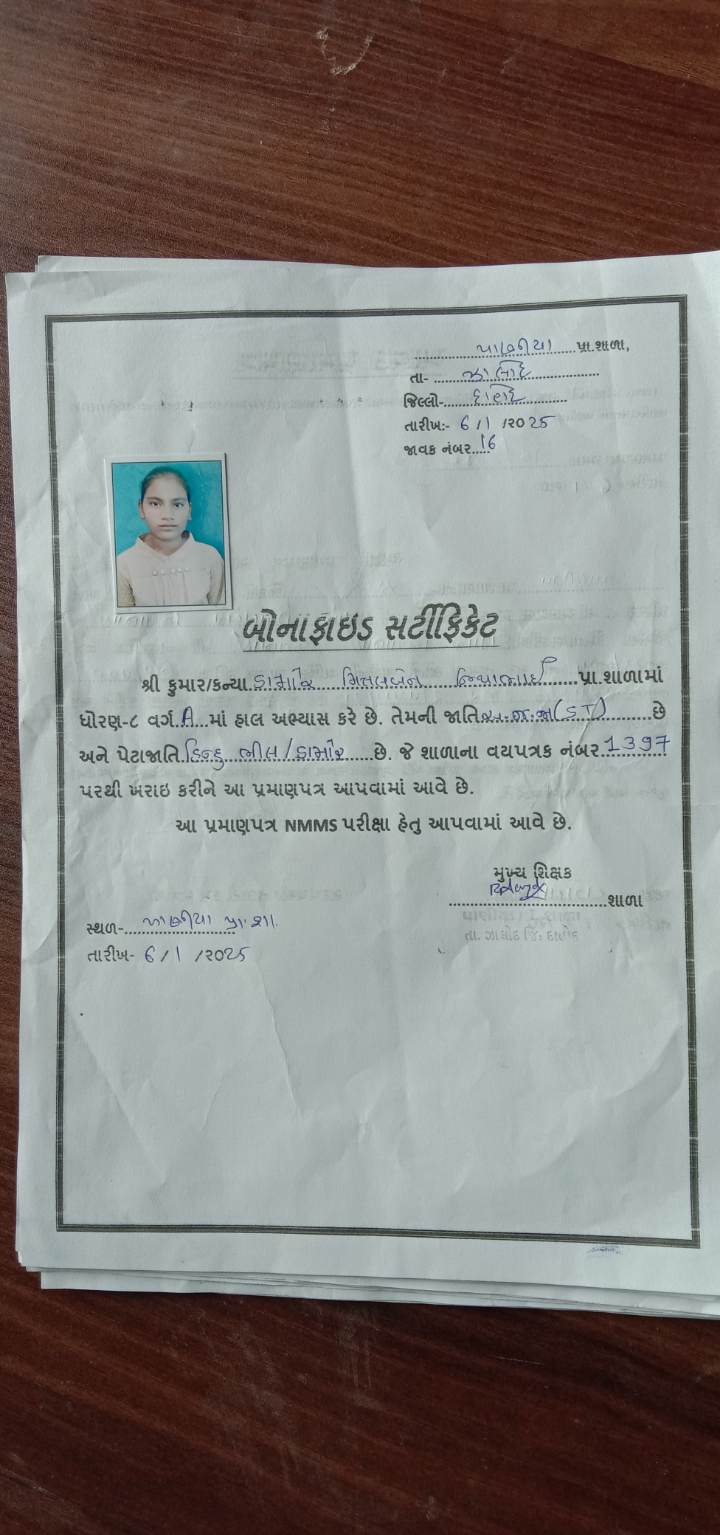 પાણીયા પ્રા.શાળા,
તા- ઝાલોદ
જિલ્લો- દાહોદ
તારીખ:- 6/1/2025
જાવક નંબર 16
બોનાફાઇડ સર્ટીફિકેટ
શ્રી કુમાર/કન્યા ડામોર મિત્તલબેન પ્રા.શાળામાં
ધોરણ-૮ વર્ગ A માં હાલ અભ્યાસ કરે છે. તેમની જાતિ અ.જ.જા (S.T) છે
અને પેટાજાતિ હિન્દુ ભીલ/ડામોર છે. જે શાળાના વયપત્રક નંબર 1397
પરથી ખરાઇ કરીને આ પ્રમાણપત્ર આપવામાં આવે છે.
આ પ્રમાણપત્ર NMMS પરીક્ષા હેતુ આપવામાં આવે છે.
મુખ્ય શિક્ષક
શાળા
સ્થળ- પાણીયા પ્રા.શા.
તા. ઝાલોદ જિ. દાહોદ
તારીખ- 6/1/2025